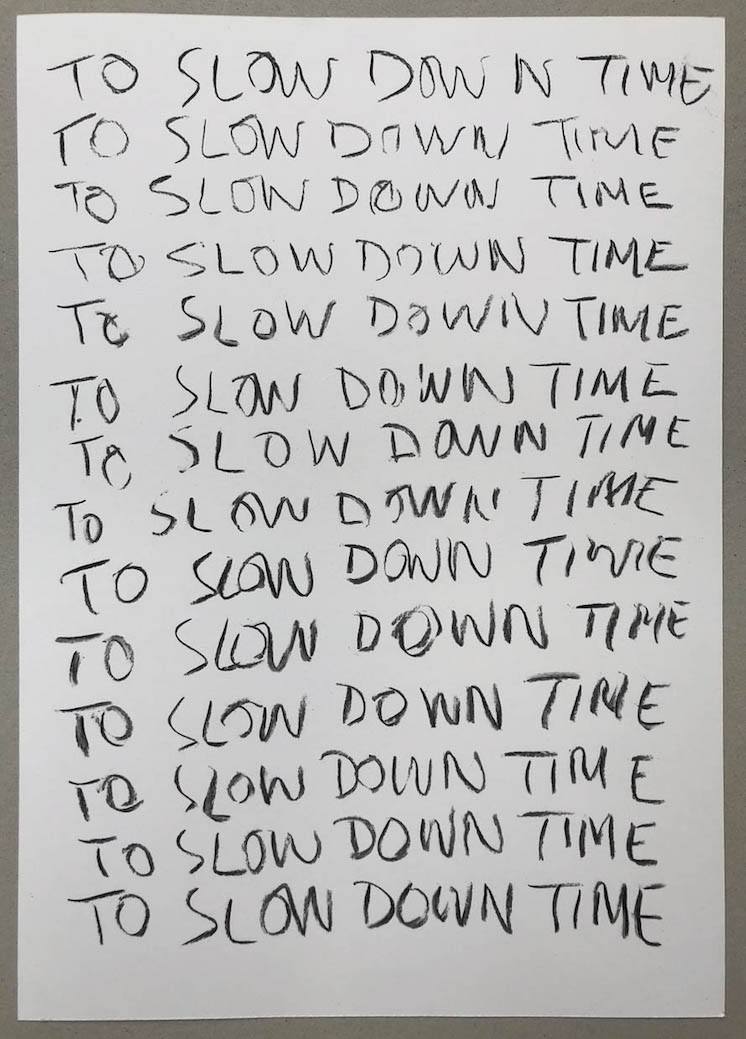 TO SLOW DOWN TIME
TO SLOW DOWN TIME
TO SLOW DOWN TIME
TO SLOW DOWN TIME
TO SLOW DOWN TIME
TO SLOW DOWN TIME
TO SLOW DOWN TIME
TO SLOW DOWN TIME
TO SLOW DOWN TIME
TO SLOW DOWN TIME
TO SLOW DOWN TIME
TO SLOW DOWN TIME
TO SLOW DOWN TIME
TO SLOW DOWN TIME